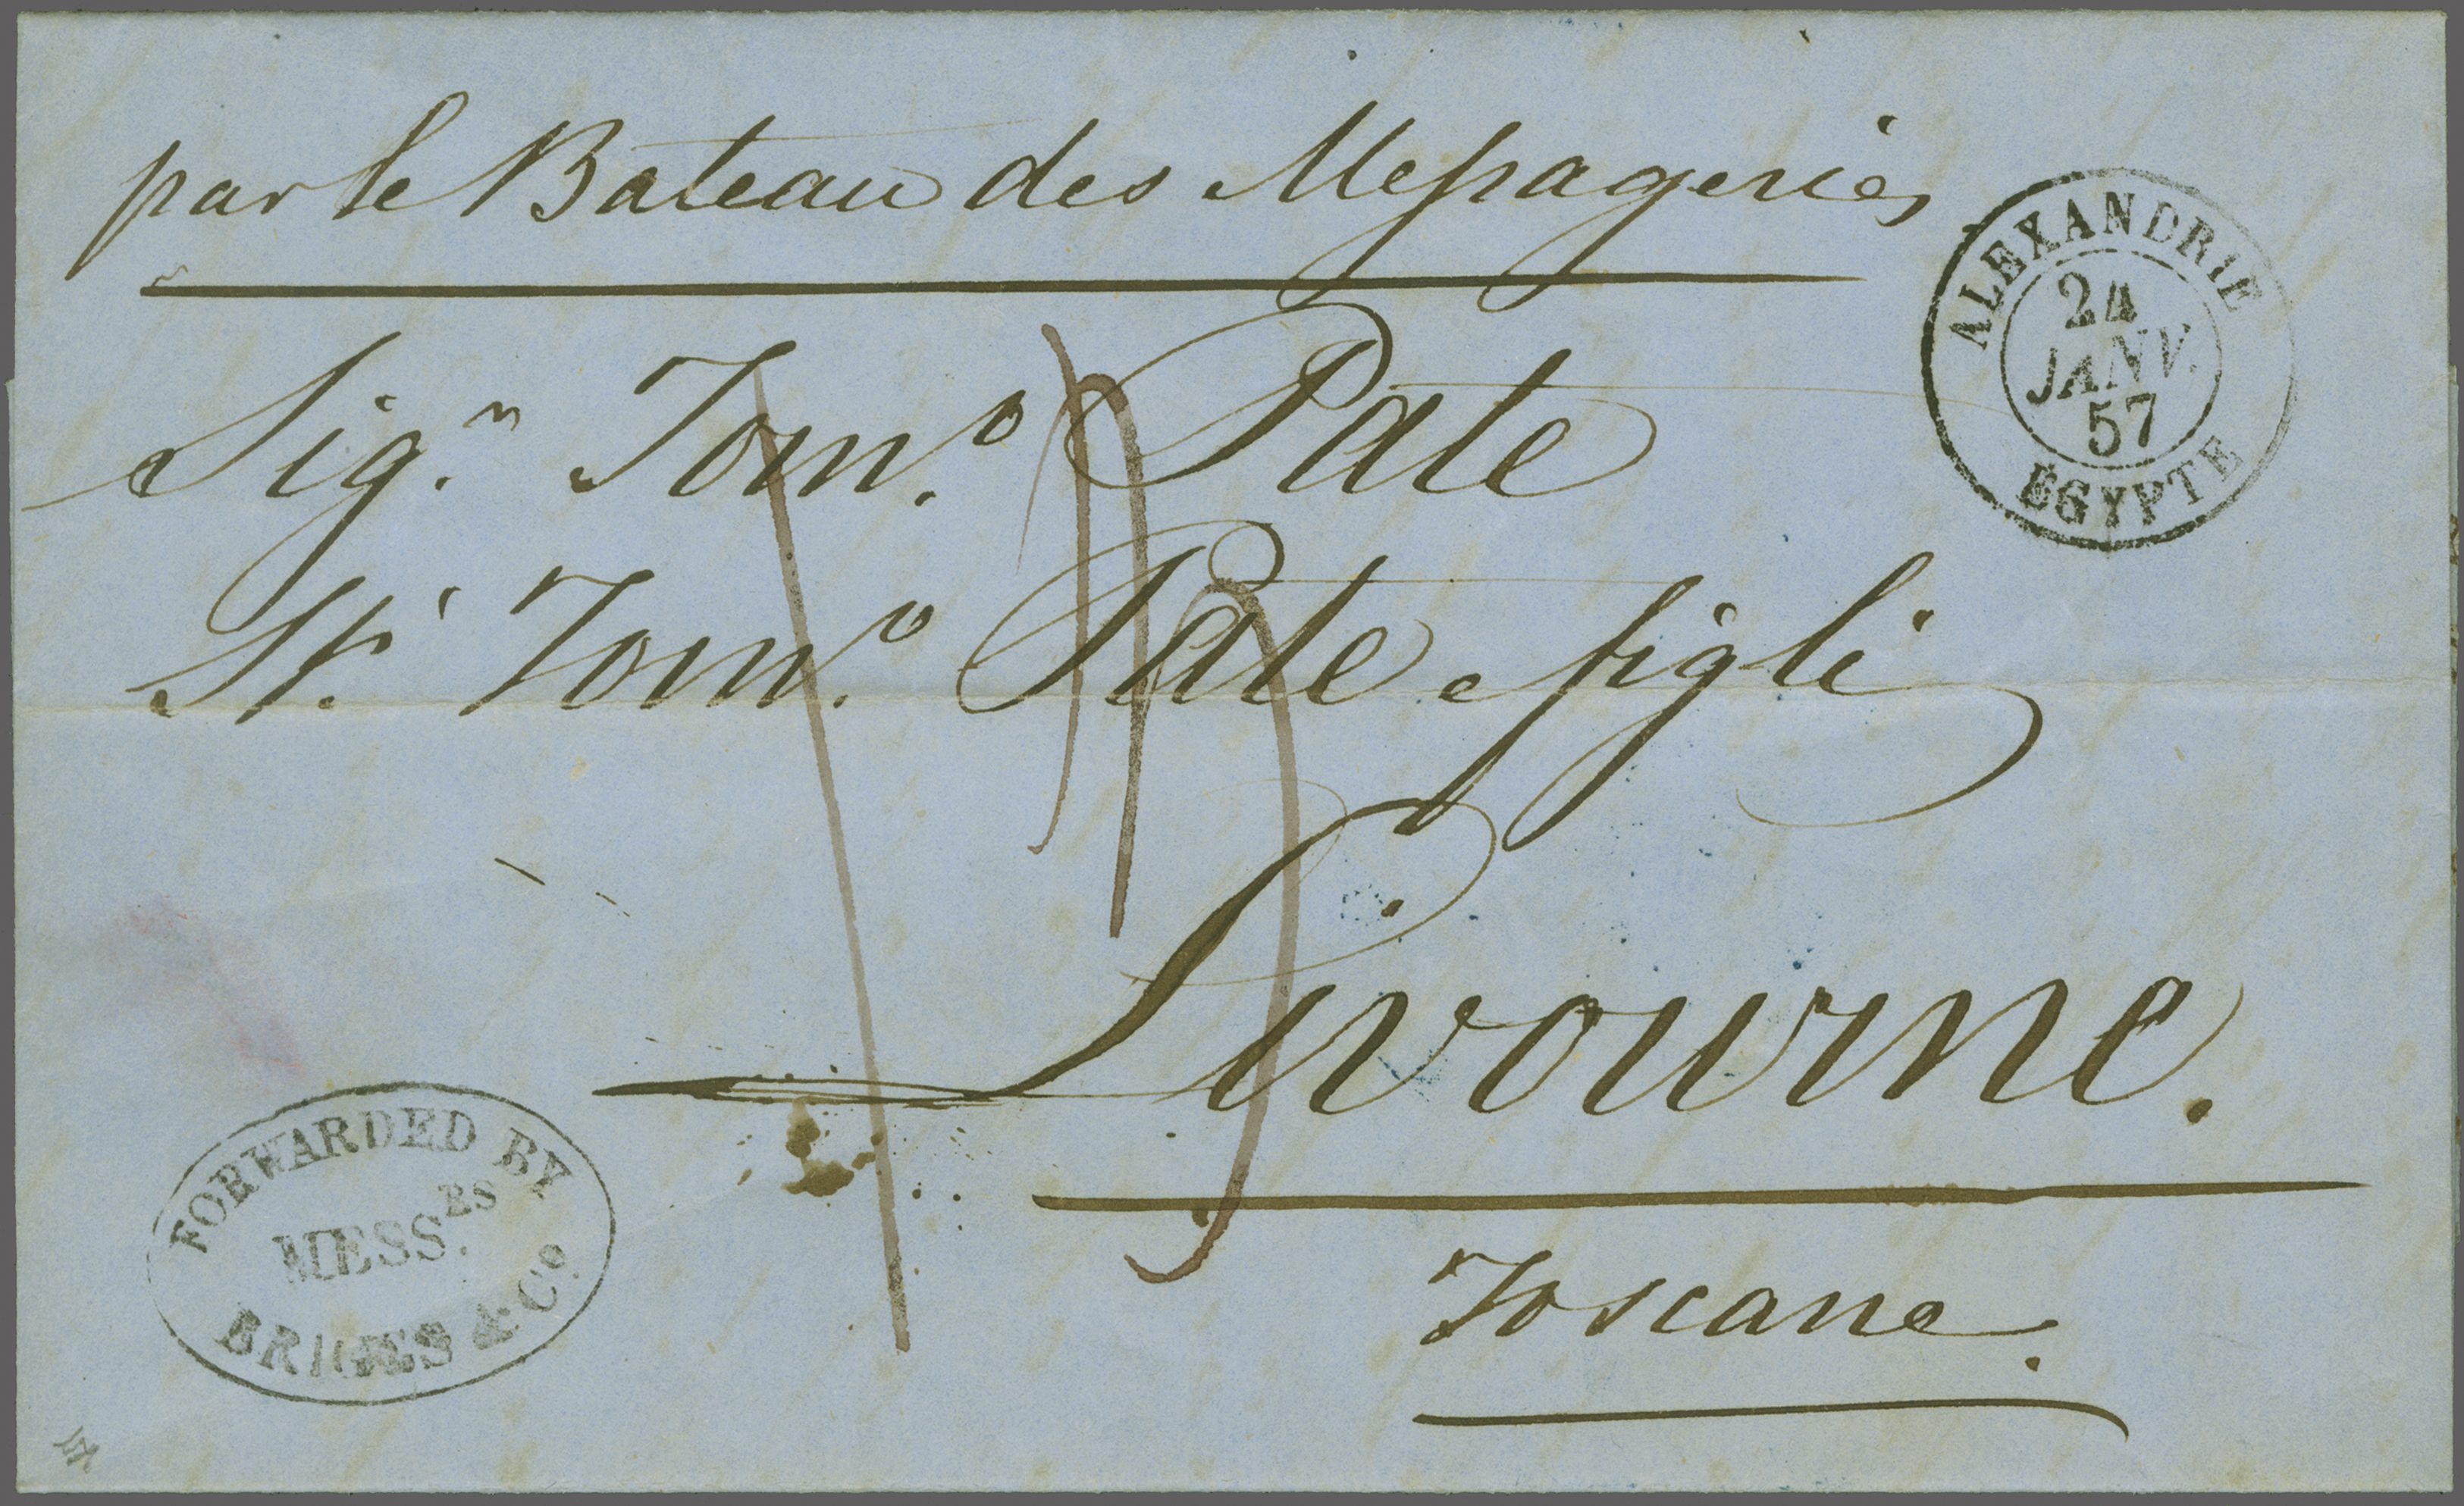 par le Bateau des Messageries
ALEXANDRIE
24
JANV.
57
ÉGYPTE
Sig.r Tom.o Pate
Sr. Tom.o Pate e figli
Livourne.
Toscane.
FORWARDED BY
MESS.RS
BRIGGS & Co.